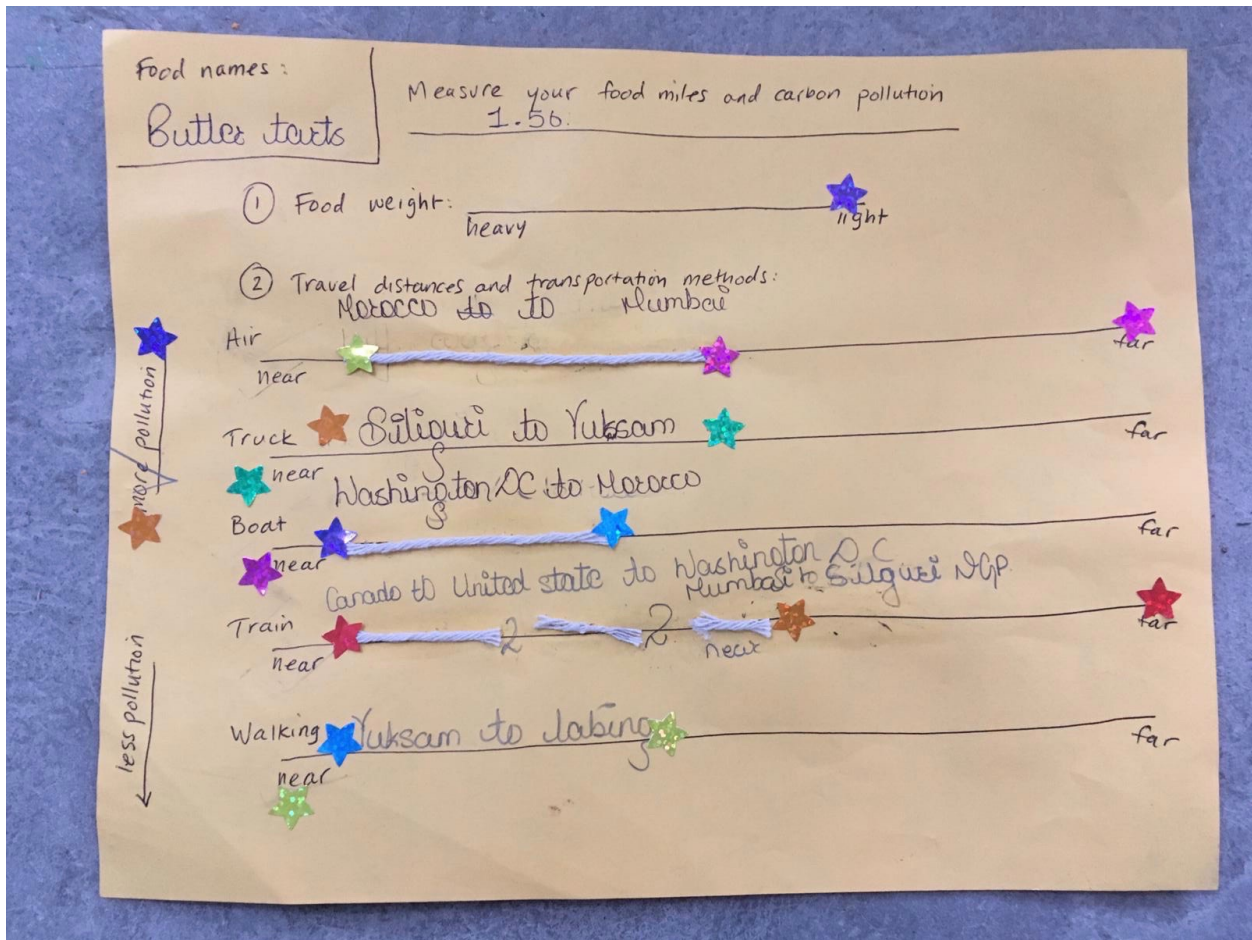 Food names:
Butter tarts
Measure your food miles and carbon pollution
1.56.
① Food weight:
heavy
light
② Travel distances and transportation methods:
Morocco to to Mumbai
Air
near
far
more pollution
Truck
Siliguri to Yuksam
near
far
Washington DC to Morocco
Boat
near
far
Canado to United state to Washington D C
Mumbai to Silguri NGP
Train
2
2
near
near
far
less pollution
Walking
Yuksam to labing
near
far